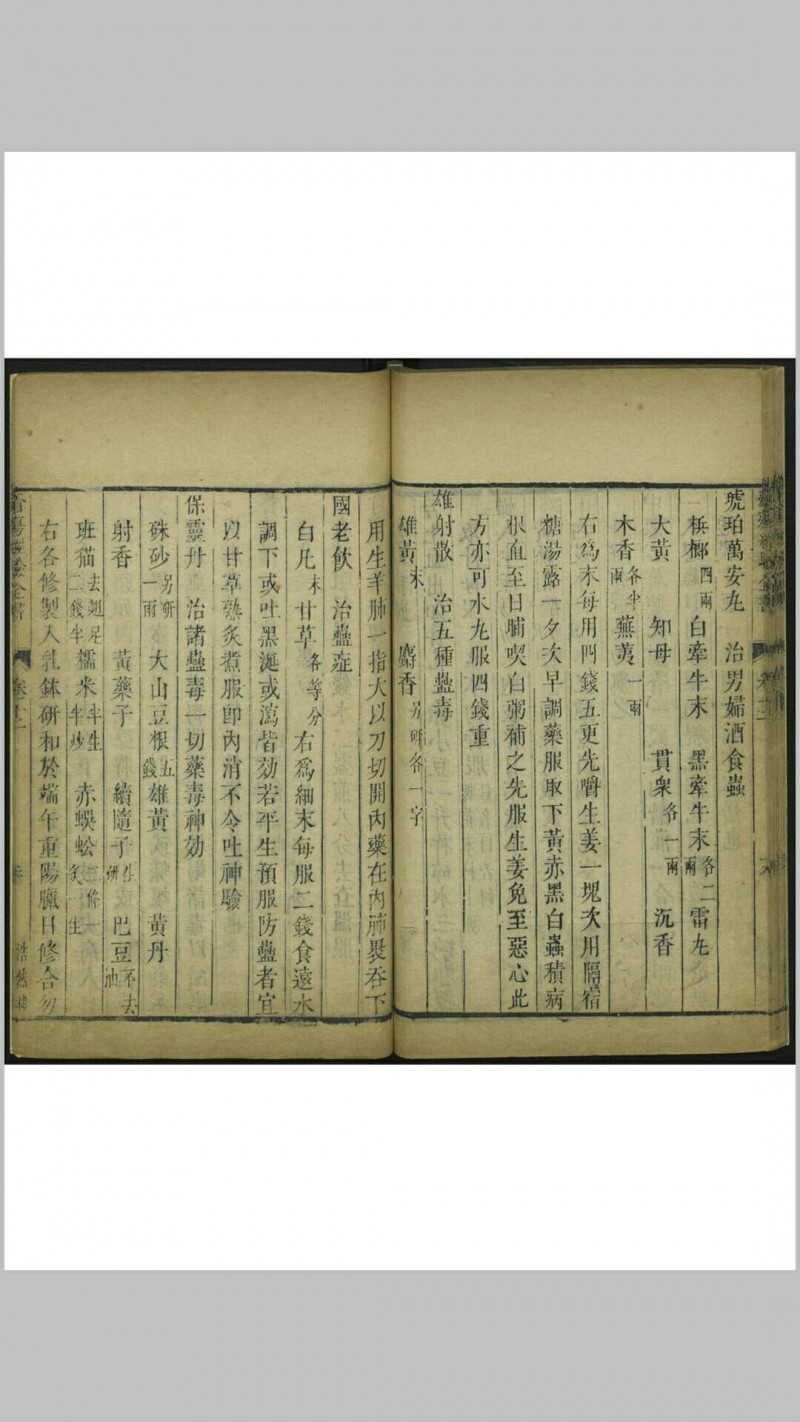 琥珀萬安丸　治男婦酒食蟲
梹榔四兩　白牽牛末　黑牽牛末各二兩　雷丸
大黃　知母　貫衆各一兩　沉香
木香各半兩　蕪荑一兩
右為末每用四錢五更先嚼生姜一塊次用隔宿
糖湯露一夕次早調藥服取下黃赤黑白蟲積病
根血至日晡喫白粥補之先服生姜免至惡心此
方亦可水丸服四錢重
雄射散　治五種蠱毒
雄黃末　麝香另研各一字
用生羊肺一指大以刀切開內藥在內沛褁吞下
國老飲　治蠱症
白凡末　甘草各等分　右爲細末每服二錢食遠水
調下或吐黑涎或瀉皆効若平生預服防蠱者宜
以甘草熟炙煮服卽內消不令吐神驗
保靈丹　治諸蠱毒一切藥毒神効
硃砂另研一兩　大山豆根五錢　雄黃　黃丹
射香　黃藥子　續隨子生研　巴豆不去油
班猫去翅足二錢半　糯米半生半炒　赤蜈蚣二條一炙一生
右各修製入乳鉢研和於端午重陽臘日修合勿
卷十二